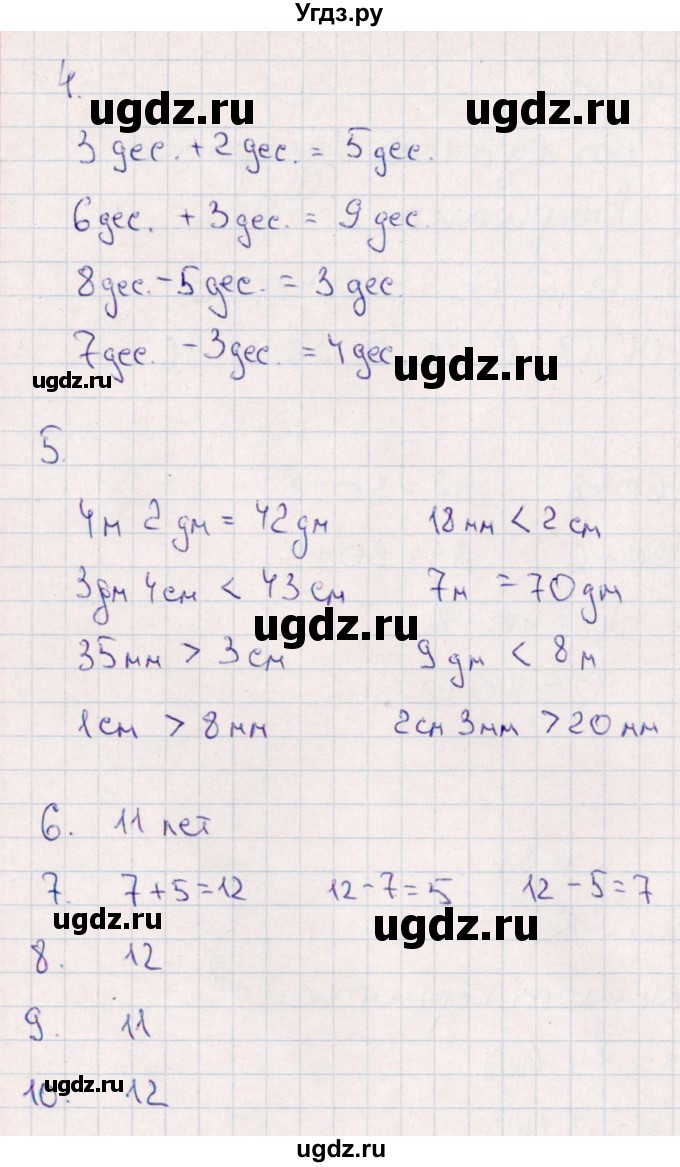 Угдз.ру
4.
ugdz.ru ugdz.ru
3 дес. + 2 дес. = 5 дес.
6 дес. + 3 дес. = 9 дес.
8 дес. - 5 дес. = 3 дес.
7 дес. - 3 дес. = 4 дес
ugdz.ru ugdz.ru
5.
4м 2 дм = 42 дм 18 мм < 2 см
3 дм 4 см < 43 см 7м = 70 дм
ugdz.ru
35 мм > 3 см 9 дм < 8 м
1 см > 8 мм 2 см 3 мм > 20 мм
6. 11 лет
7. 7 + 5 = 12 12 - 7 = 5 12 - 5 = 7
ugdz.ru ugdz.ru
8. 12
9. 11
10. 12
ugdz.ru
ugdz.ru